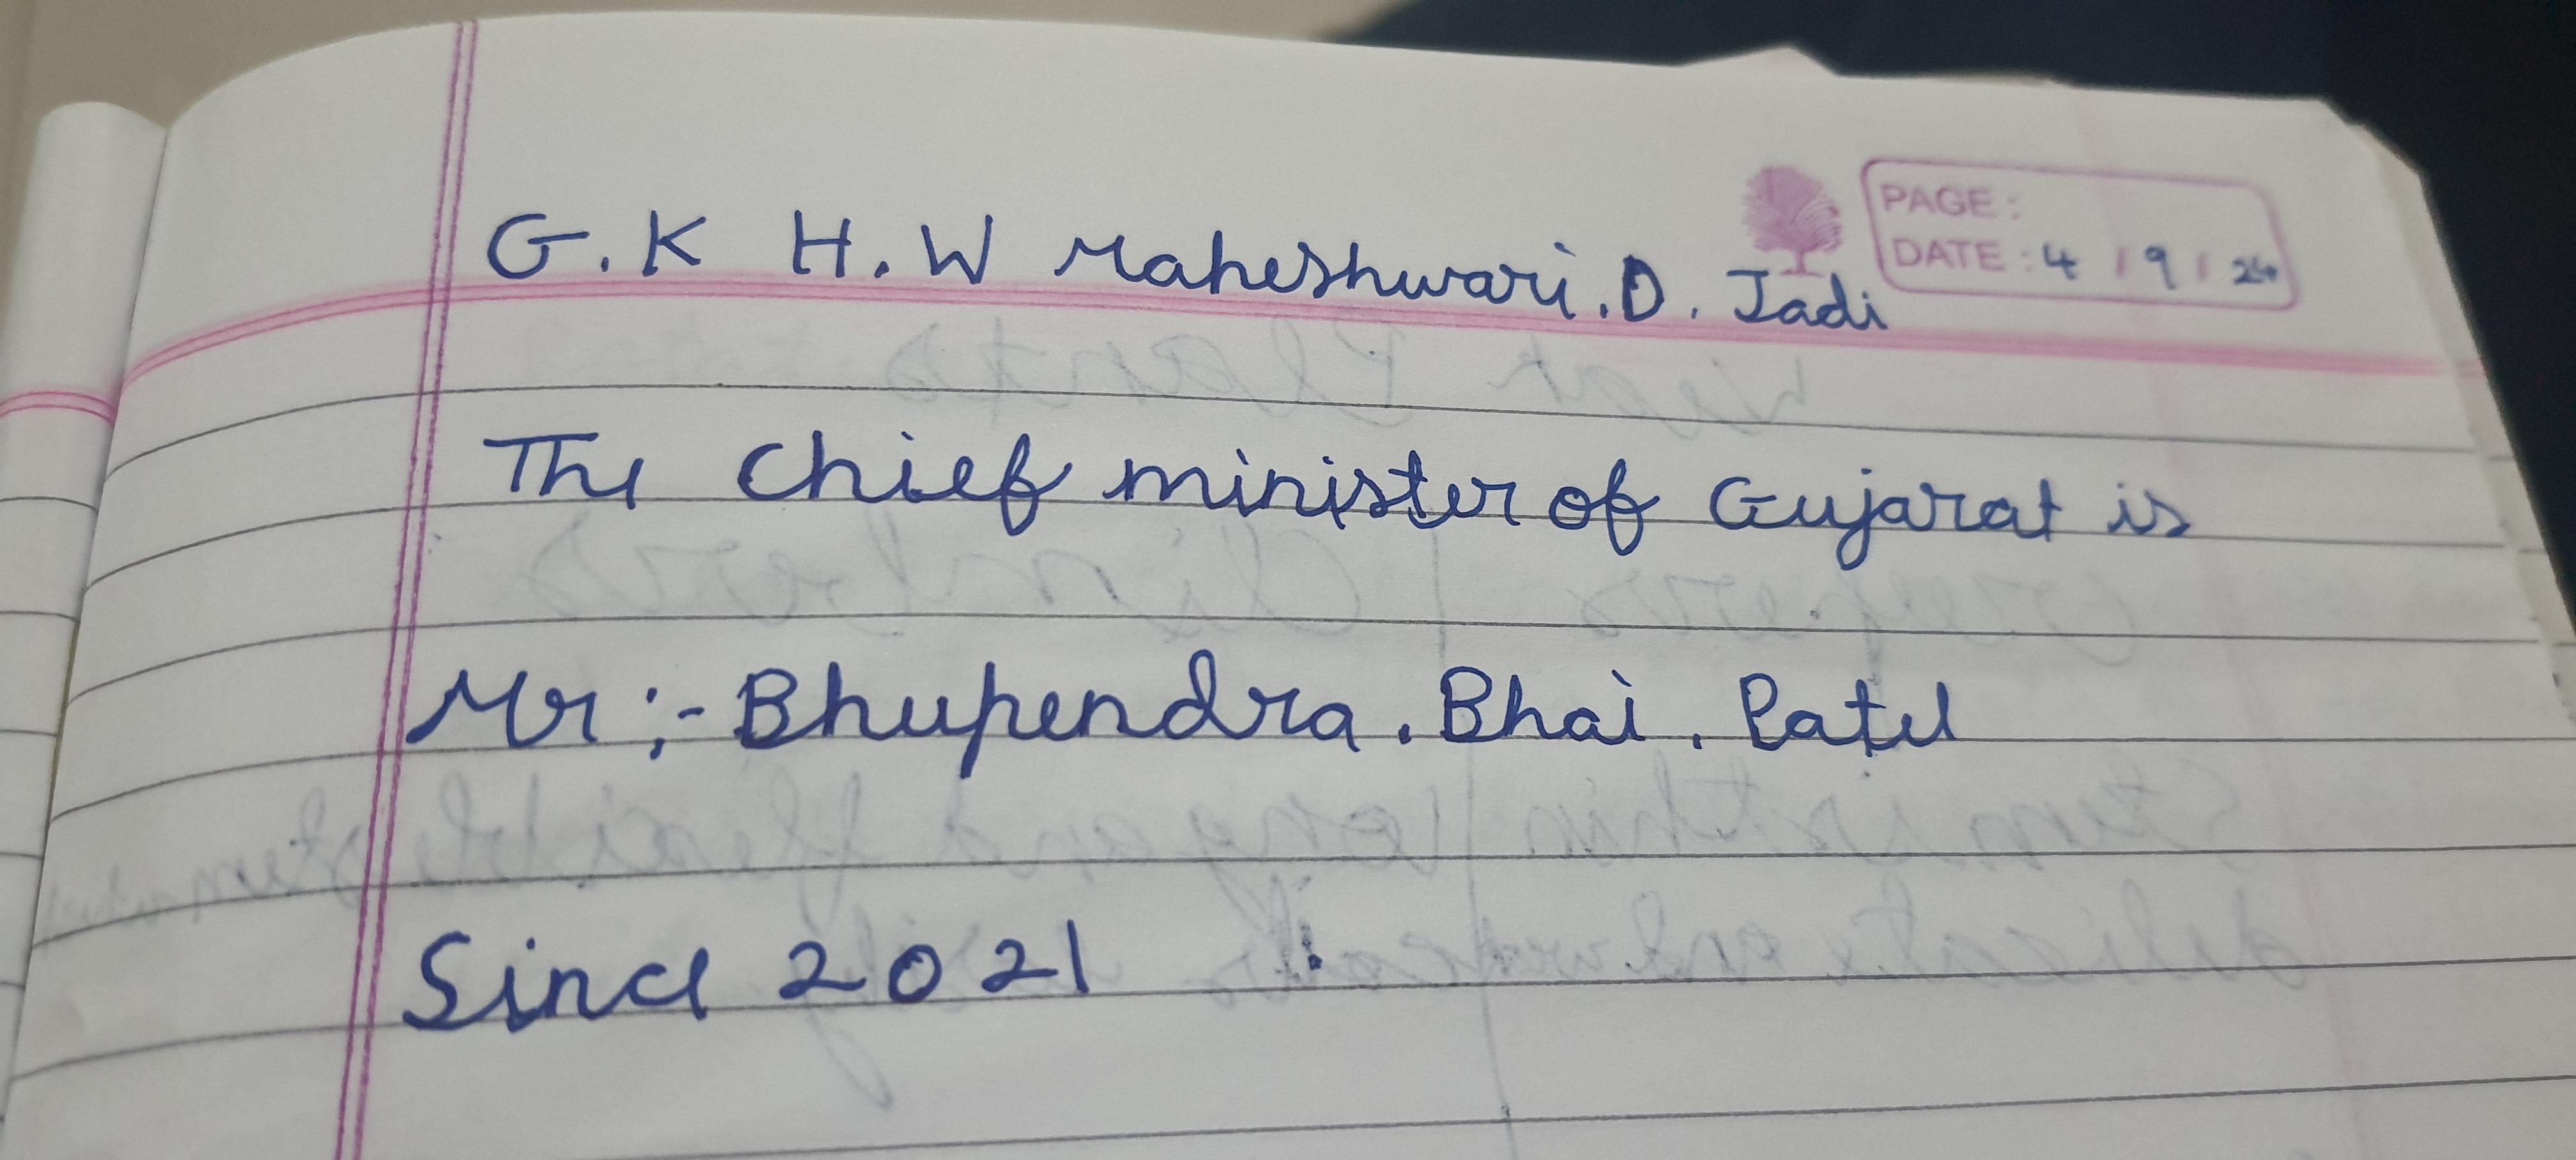 PAGE :
DATE : 4 / 9 / 24
G.K H.W Maheshwari.D. Jadi
The Chief minister of Gujarat is
Mr :- Bhupendra. Bhai. Patel
Since 2021